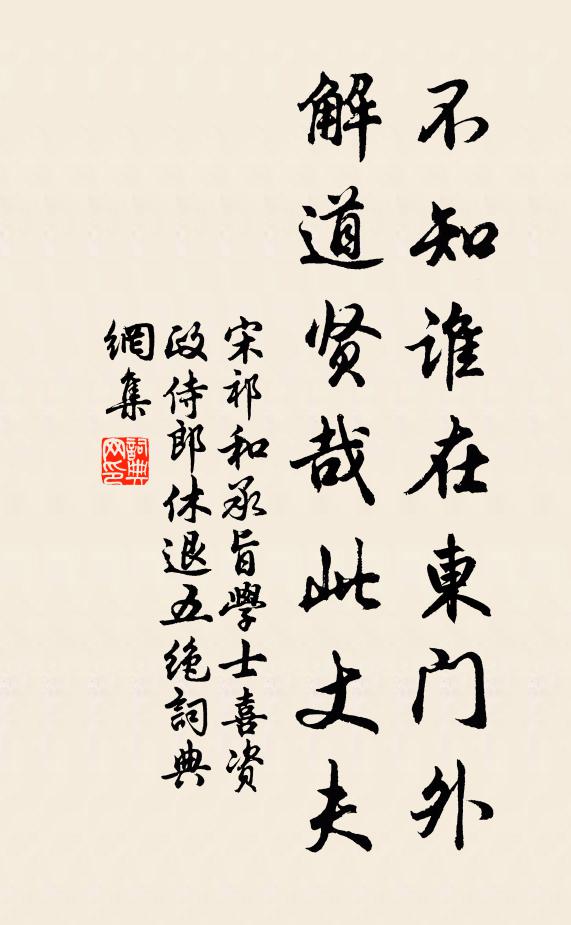 不知誰在東門外
解道贤哉此丈夫
宋祁和承旨學士喜资
政侍郎休退五绝詞典
網集
詞典
网印